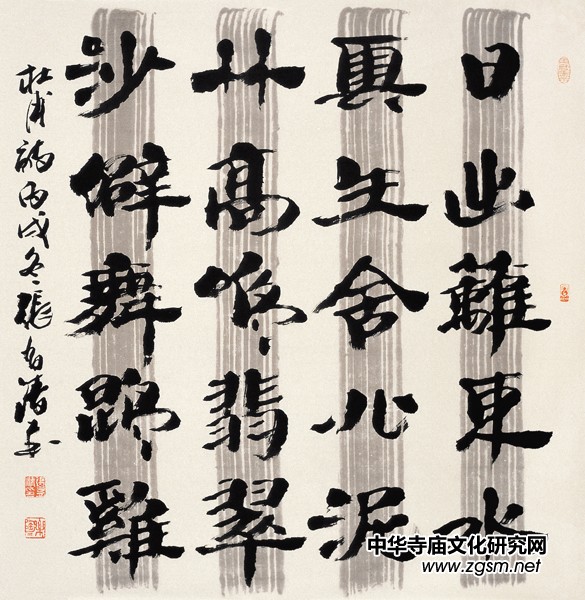 日出籬東水
雲生舍北泥
竹高鳴翡翠
沙僻舞鵾雞
杜甫詩丙戌冬張
中华寺庙文化研究网
www.zgsm.net